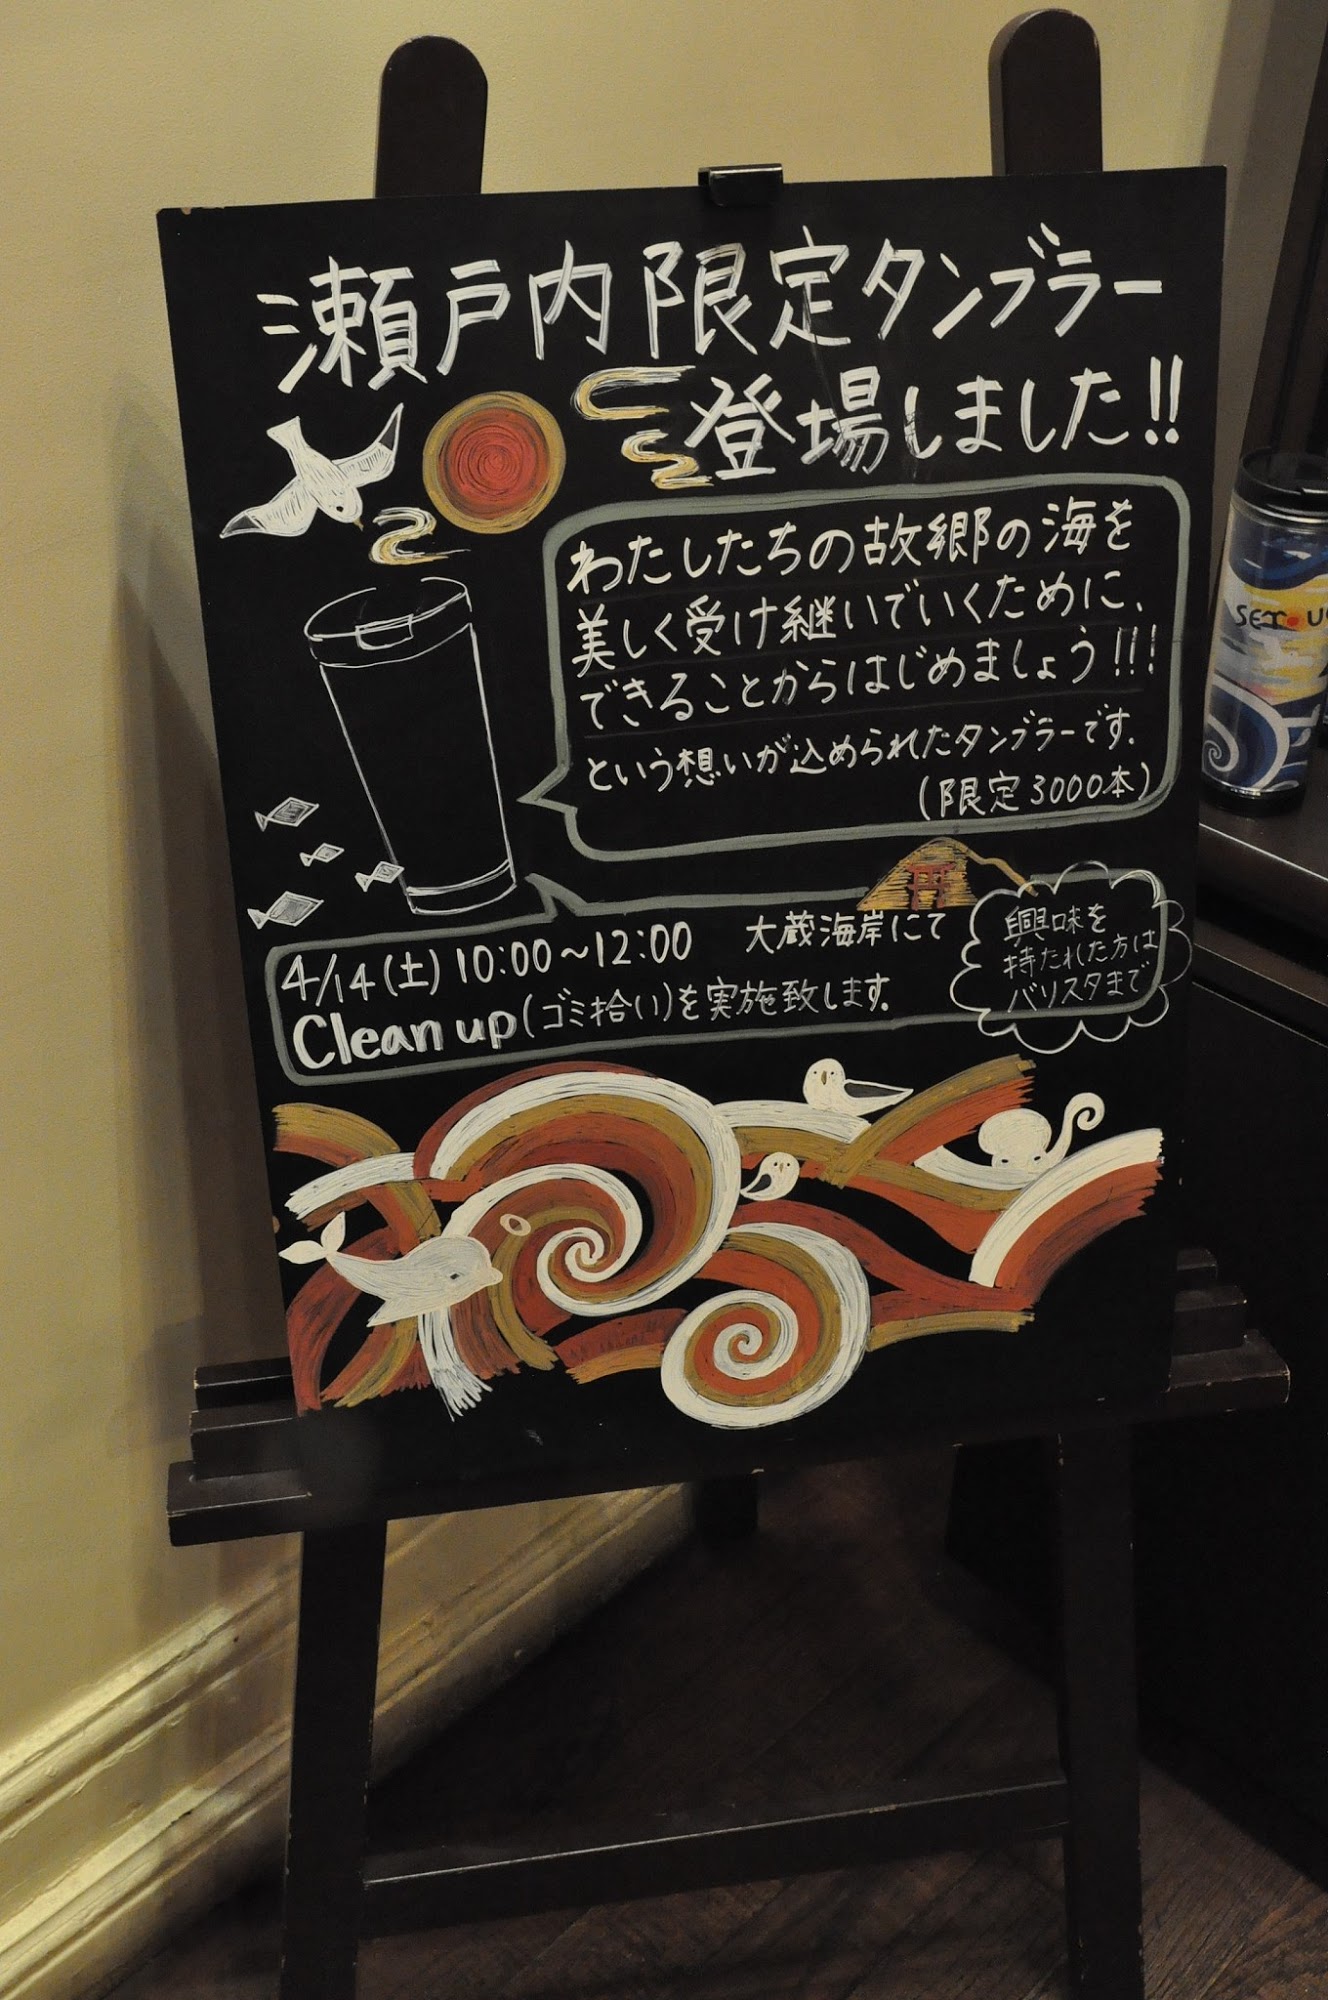 瀬戸内限定タンブラー
登場しました!!
わたしたちの故郷の海を
美しく受け継いでいくために、
できることからはじめましょう!!!
という想いが込められたタンブラーです.
(限定3000本)
4/14(土) 10:00~12:00 大蔵海岸にて
Clean up(ゴミ拾い)を実施致します.
興味を
持たれた方は
バリスタまで